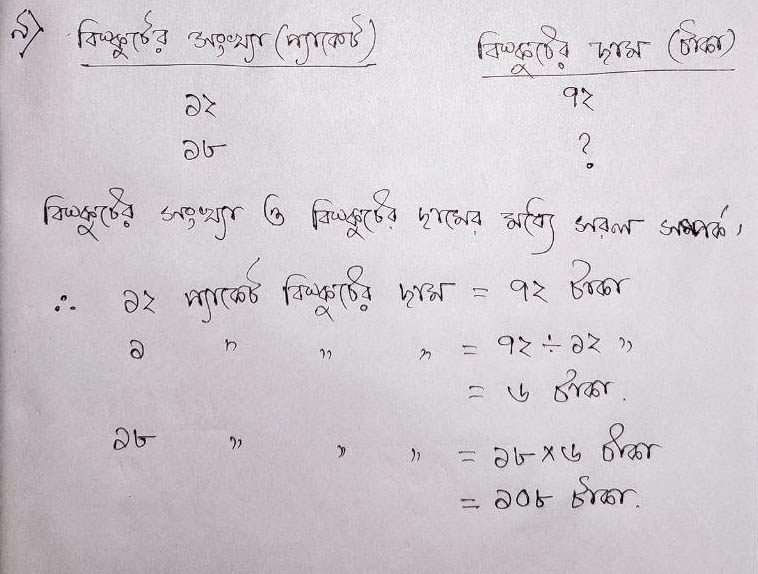 ৯) বিস্কুটের সংখ্যা (প্যাকেট) বিস্কুটের দাম (টাকা)
১২ ৭২
১৮ ?
বিস্কুটের সংখ্যা ও বিস্কুটের দামের মধ্যে সরল সম্পর্ক,
∴ ১২ প্যাকেট বিস্কুটের দাম = ৭২ টাকা
১ " " " = ৭২ ÷ ১২ "
= ৬ টাকা.
১৮ " " " = ১৮ × ৬ টাকা
= ১০৮ টাকা.